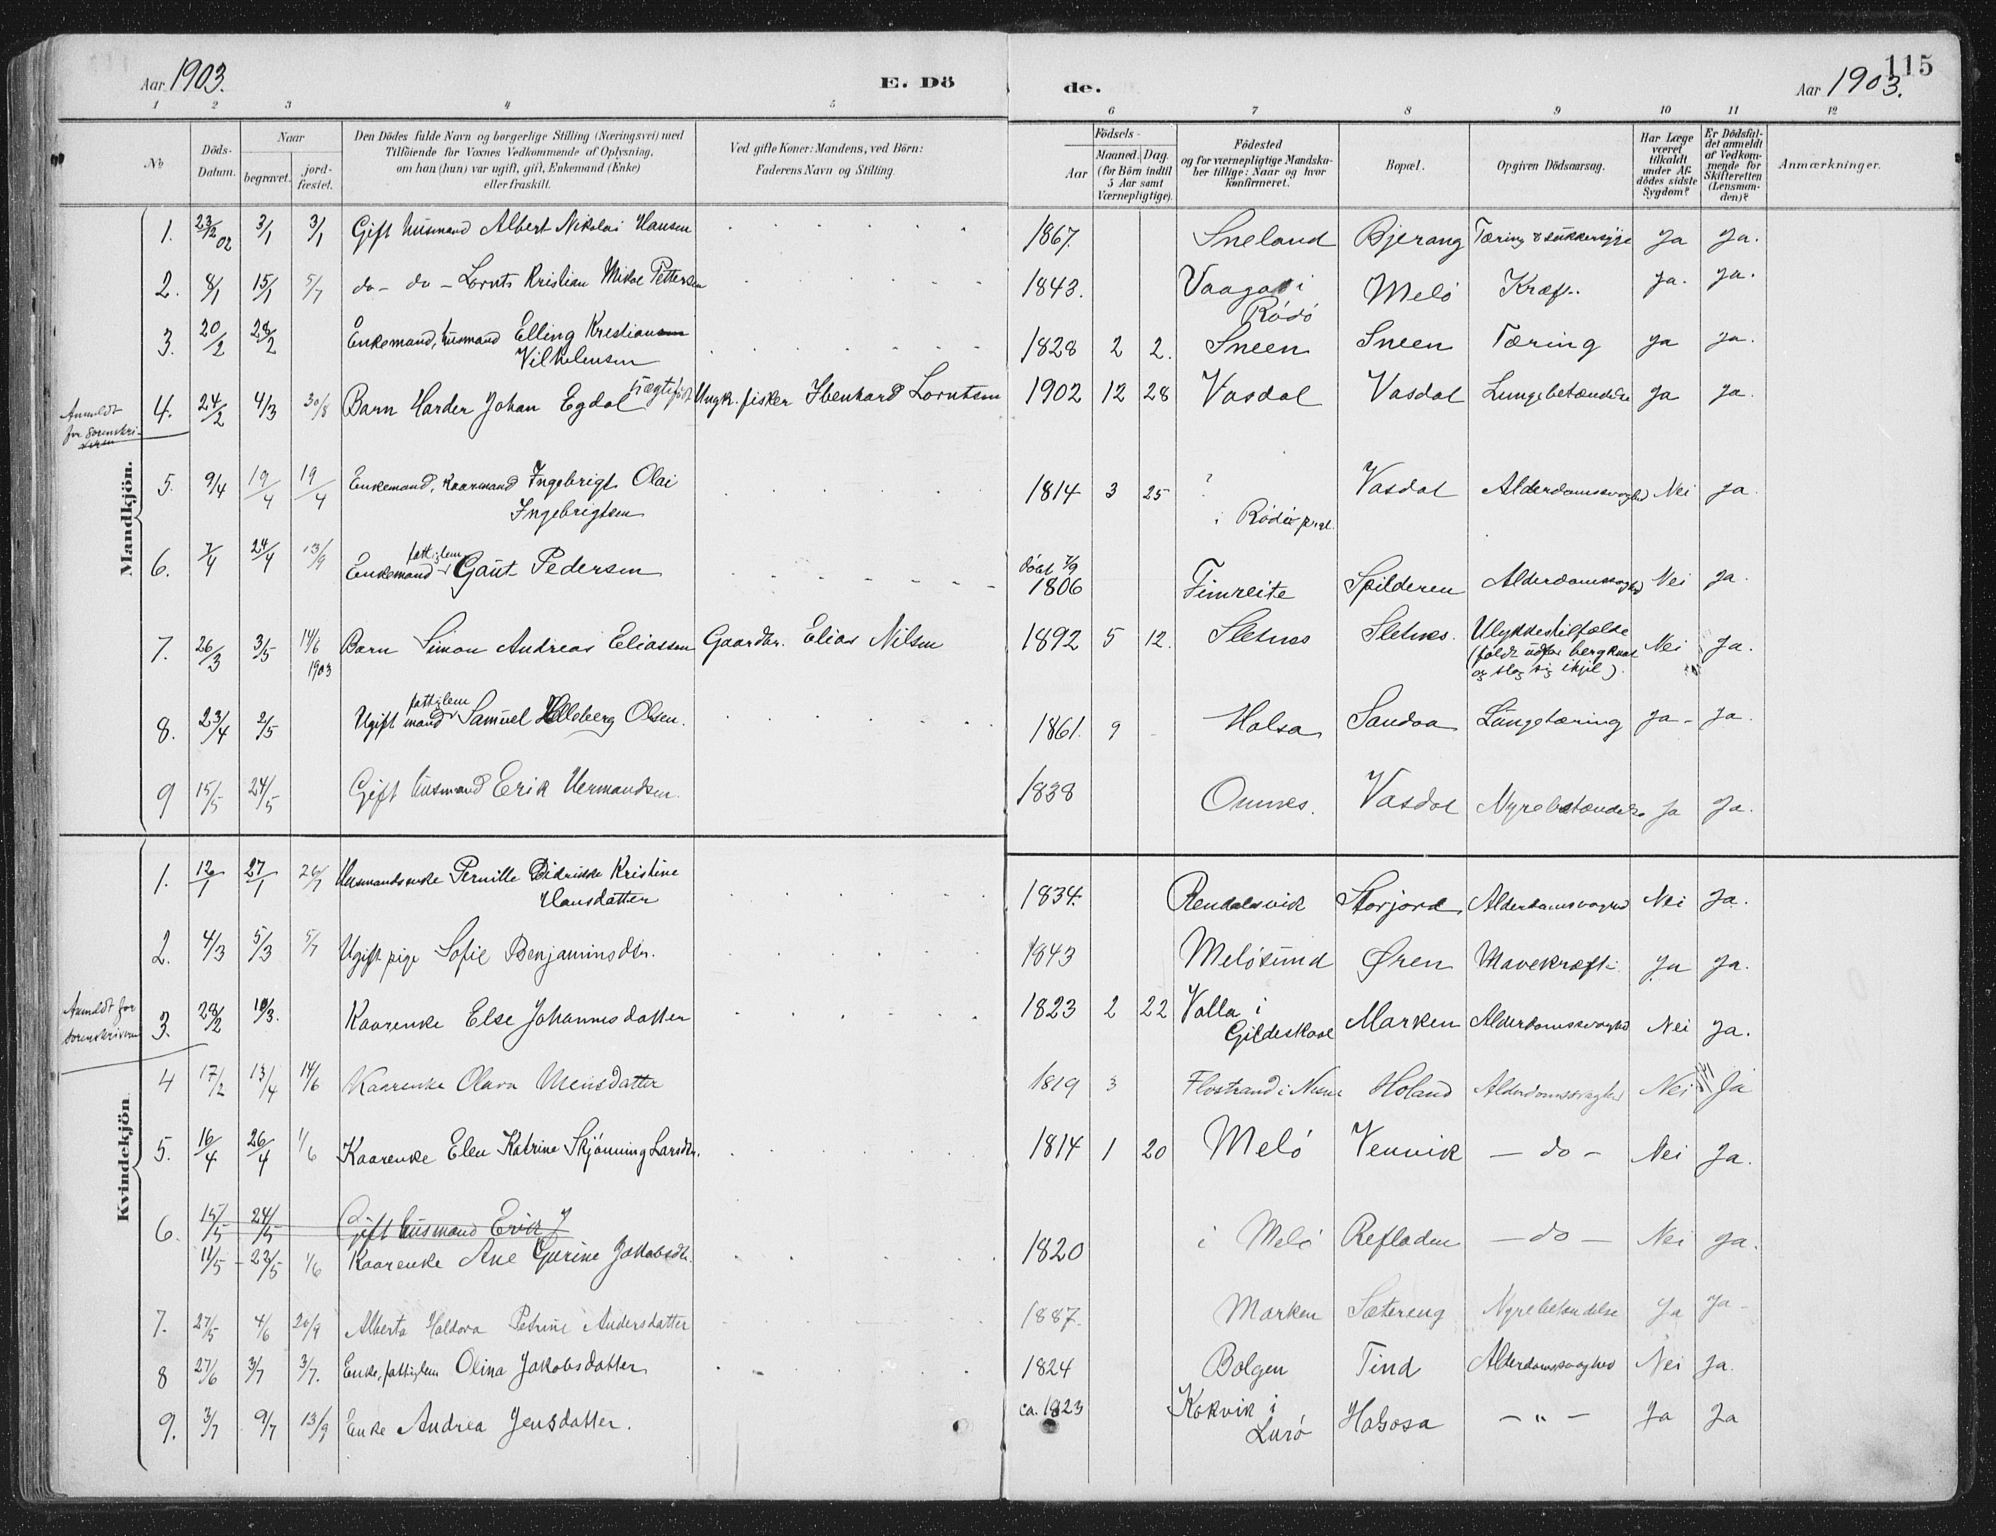 115
Aar 1903. E. Dö de. Aar 1903.
1 2 3 4 5 6 7 8 9 10 11 12
No Döds-Datum. Naar begravet. jord-fæstet. Den Dödes fulde Navn og borgerlige Stilling (Næringsvei) med Tilföiende for Voxnes Vedkommende af Oplysning, om han (hun) var ugift, gift, Enkemand (Enke) eller fraskilt. Ved gifte Koner: Mandens, ved Börn: Faderens Navn og Stilling. Aar Födsels- Maaned. Dag. (for Börn indtil 5 Aar samt Værnepligtige). Födested og for værnepligtige Mandska-ber tillige: Naar og hvor konfirmeret. Bopæl. Opgiven Dödsaarsag. Har Læge været tilkaldt under Af-dödes sidste Sygdom? Er Dödsfal-det anmeldt af Vedkom-mende for Skifteretten (Lensman-den)? Anmærkninger.
Mandkjön.
1. 23/12 02 3/1 3/1 Gift husmand Albert Nikolai Hansen 1867. Sneland Bjerang Tæring & sukkersyge Ja Ja.
2. 8/1 15/1 5/7 do - do - Lornts Kristian Mikal Pettersen 1843. Vaaga i Rödö Melö Kræft. Ja. Ja.
3. 20/2 28/2 Enkemand, husmand Elling Kristian Vilhelmsen 1828 2 2. Sneen Sneen Tæring Ja Ja.
Anmeldt for Sorenskriveren
4. 24/2 4/3 30/8 Barn Harder Johan Egdal uægtefödt Ungk. fisker Ibenhard Lorntsen 1902 12 28 Vasdal Vasdal Lungebetændelse Ja Ja.
5. 9/4 19/4 19/4 Enkemand, kaarmand Ingebrigt Olai Ingebrigtsen 1814 3 25 ? i Rödö prgl. Vasdal Alderdomssvaghed Nei Ja.
6. 7/4 24/4 13/9 Enkemand fattiglem Gaut Pedersen döbt 7/9 1806 Fimreite Spilderen Alderdomssvaghed Nei Ja.
7. 26/3 3/5 14/6 1903 Barn Simon Andreas Eliassen Gaardbr. Elias Nilsen 1892 5 12. Sletnes Sletnes. Ulykkestilfælde (faldt udfor bergknat og slog sig ihjel). Nei Ja.
8. 23/4 2/5 Ugift mand fattiglem Samuel Helleberg Olsen. 1861. 9 Halsa Sandaa Lungetæring Ja - Ja.
9 15/5 24/5 Gift husmand Erik Hermandsen. 1838 Ounes. Vasdal Nyrebetændelse Ja Ja.
Kvindekjön
1. 12/1 27/1 26/7 Husmandsenke Pernille Didrikke Kristine Hansdatter 1834. Rendalsvik Storjord Alderdomssvaghed Nei Ja.
2. 4/3 5/3 5/7 Ugift pige Sofie Benjaminsdtr. 1843 Melösund Øren Mavekræft. Ja Ja.
Anmeldt for sorenskriveren
3. 28/2 10/3. Kaarenke Else Johannesdatter 1823 2 22 Valla i Gildeskaal Marken Alderdomssvaghed Nei Ja.
4 17/2 13/4 14/6 Kaarenke Olava Monsdatter 1819 3 Flostrand i Nesne Holand Alderdomssvaghed Nei Ja
5. 16/4 26/4 1/6 Kaarenke Elen Katrine Skjönning Larsdtr. 1814 1 20 Melö Vennvik - do - Nei Ja.
6. 15/5 24/5 Gift husmand Erik
11/5 - 23/5 1/6 Kaarenke Ane Gurine Jakobsdtr. 1820 i Melö Refladen - do - Nei Ja.
7. 27/5 4/6 20/9 Alberta Haldora Petrine Andersdatter 1887. Marken Sætereng Nyrebetændelse Ja Ja -
8 27/6 3/7 3/7. Enke, fattiglem Olina Jakobsdatter 1824 Bolgen Tind Alderdomssvaghed Nei Ja.
9. 3/7 9/7 13/9 Enke Andrea Jensdatter. ca. 1823 Kokvik i Lurö Halsosa - " - Ja Ja